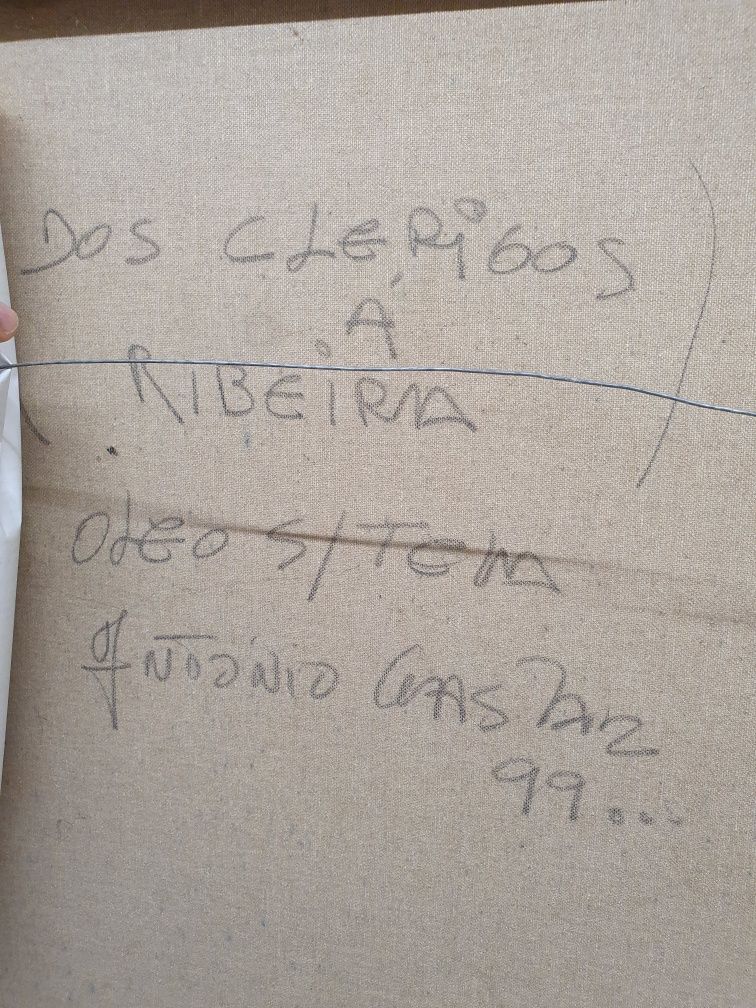 (DOS CLERIGOS
À
RIBEIRA)
OLEO S/ TELA
ANTÓNIO GASPAR
99...